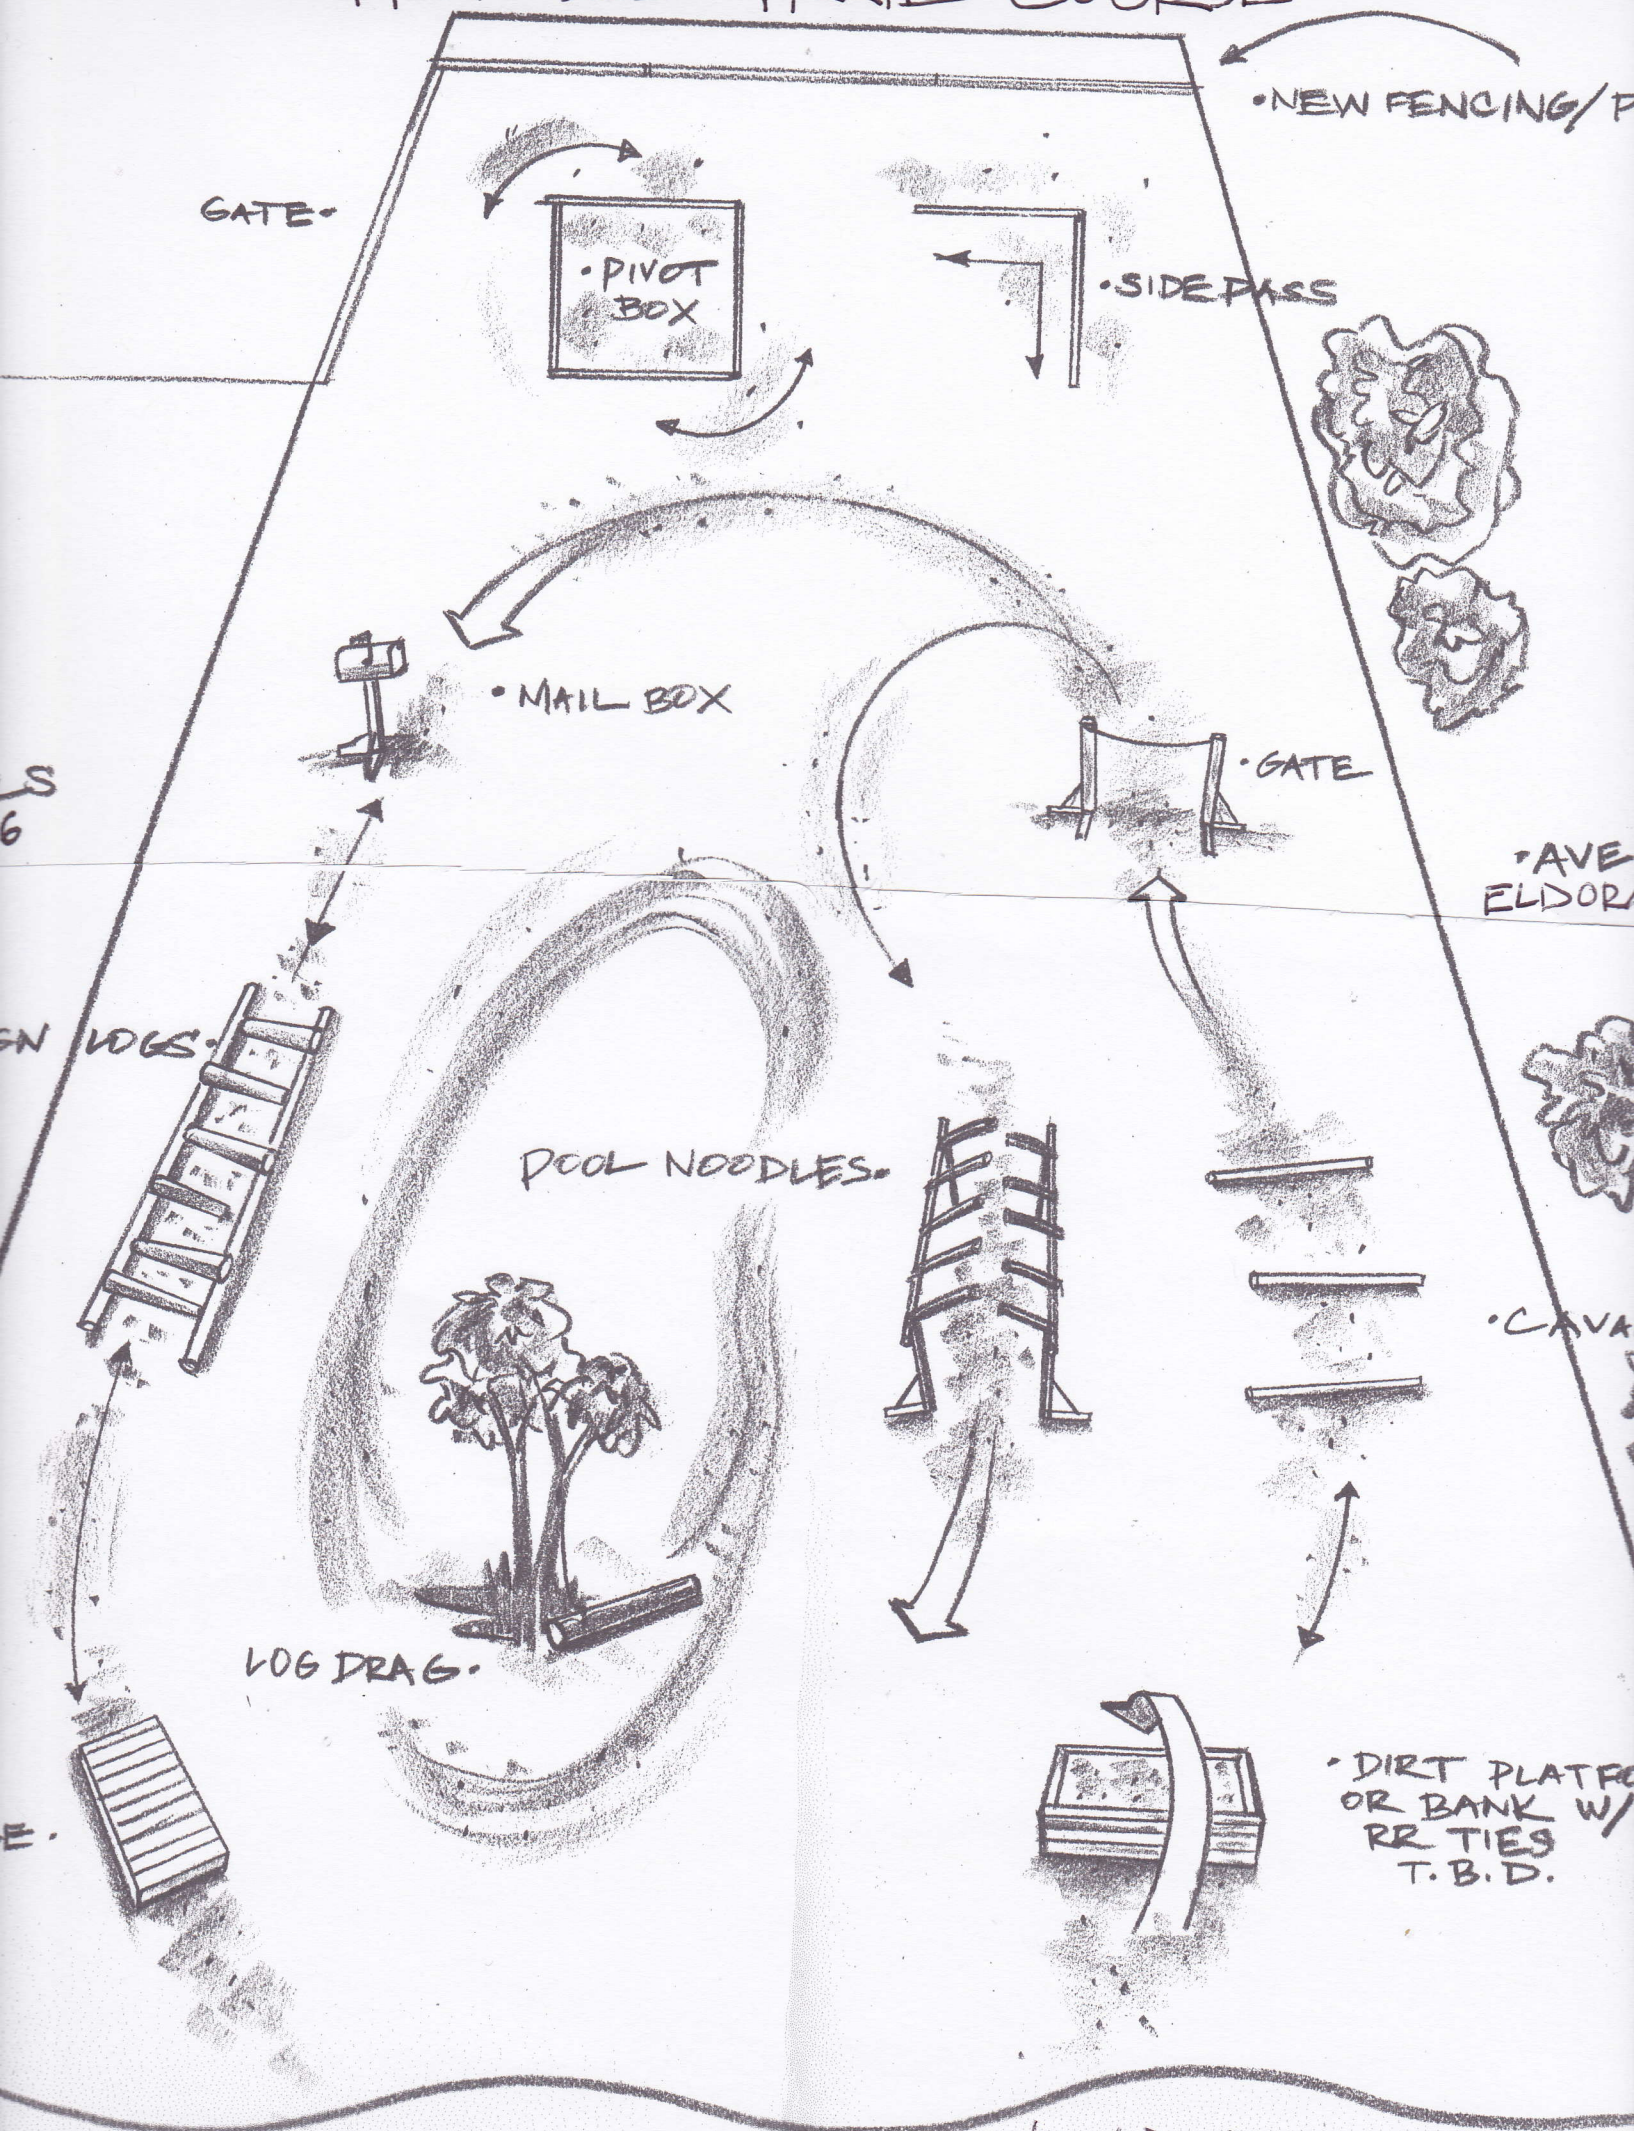 TRAIL COURSE
• NEW FENCING/
GATE •
• PIVOT
BOX
• SIDEPASS
• MAIL BOX
• GATE
LS
6
• AVE
ELDORA
GN LOGS •
POOL NOODLES •
• CAVA
LOG DRAG •
• DIRT PLATFO
OR BANK W/
RR TIES
T.B.D.
E •